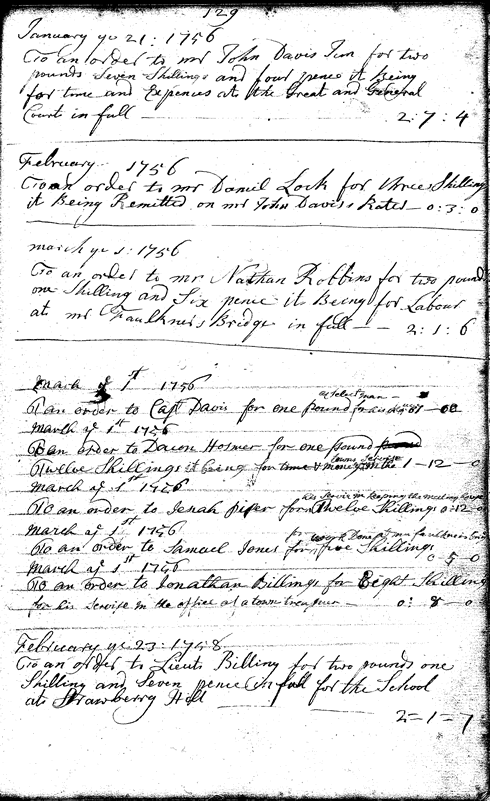 129
January ye 21: 1756
To an order to mr John Davis Jun for two
pounds Seven Shillings and four pence it Being
for time and Expences at the Great and General
Court in full 2:7:4
February 1756
To an order to mr Daniel Lock for three Shilling
it Being Remitted on mr John Davis's Rates 0:3:0
march ye 1: 1756
To an order to mr Nathan Robbins for two pounds
one Shilling and Six pence it Being for Labour
at mr Faulkner's Bridge in full 2:1:6
March ye 1st 1756
as select man
To an order to Capt Davis for one pound for his
march ye 1st 1756
To an order to Deacon Hosmer for one pound
Twelve Shillings it being for time & money 1-12-0
march ye 1st 1756
his Servis in keeping the meeting house
To an order to Jonah piper for Twelve Shillings 0:12-0
march ye 1st 1756
for work Done at mr faulkners
To an order to Samuel Jones for five Shillings
0 5 0
march ye 1st 1756
To an order to Jonathan Billings for Eight Shilling
for his Servise in the office of a town treasurer 0:8-0
February ye 23: 1758
To an order to Lieut Billing for two pounds one
Shilling and Seven pence in full for the School
at Strawberry Hill
2=1=7